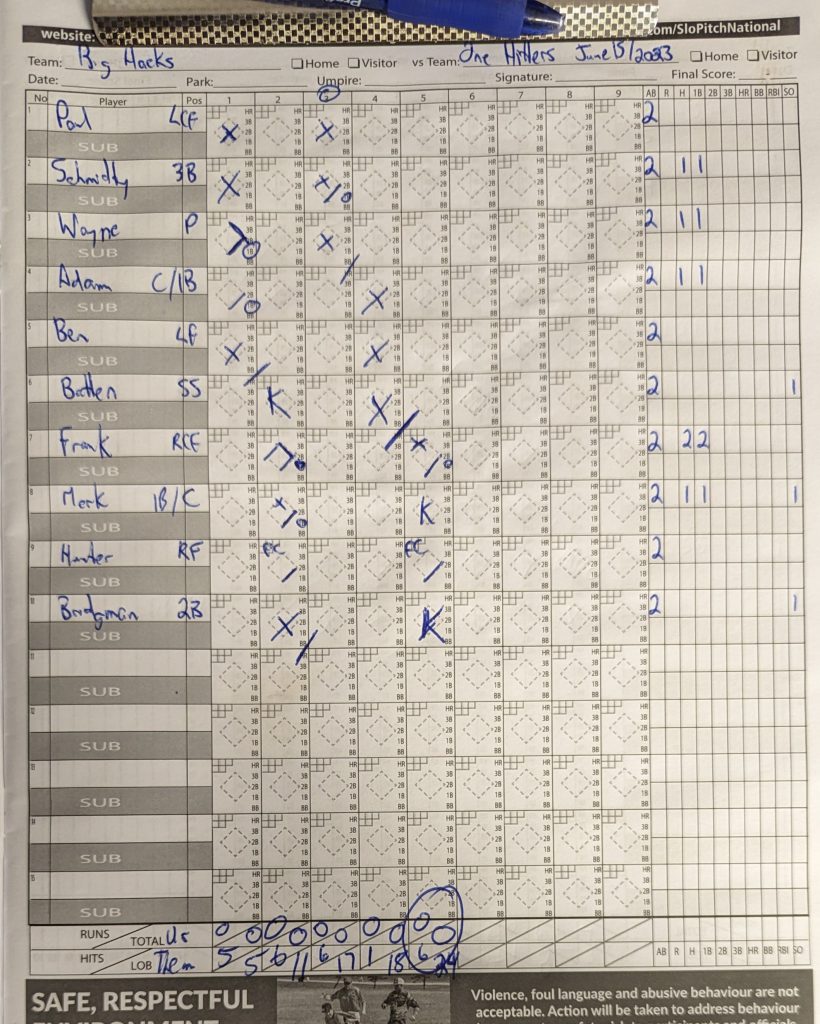 website:
.com/SloPitchNational
Team: Big Hacks □Home □Visitor vs Team: One Hitters June 15/2023 □Home □Visitor
Date: Park: Umpire: Signature: Final Score:
No Player Pos 1 2 3 4 5 6 7 8 9 AB R H 1B 2B 3B HR BB RBI SO
1 Paul LCF X X 2
SUB
2 Schmidty 3B X X 2 1 1
SUB
3 Wayne P X 2 1 1
SUB
4 Adam C/1B X 2 1 1
SUB
5 Ben LF X X 2
SUB
6 Batten SS K X 2 1
SUB
7 Frank RCF 2 2 2
SUB
8 Mark 1B/C K 2 1 1 1
SUB
9 Hunter RF FC FC 2
SUB
10 Bridgman 2B X K 2 1
SUB
11
SUB
12
SUB
13
SUB
14
SUB
15
SUB
RUNS TOTAL Us 0 0 0 0 0 0 0 0 0 0
HITS LOB Them 5 5 6 11 6 17 1 18 6 24 AB R H 1B 2B 3B HR BB RBI SO
SAFE, RESPECTFUL
Violence, foul language and abusive behaviour are not
acceptable. Action will be taken to address behaviour